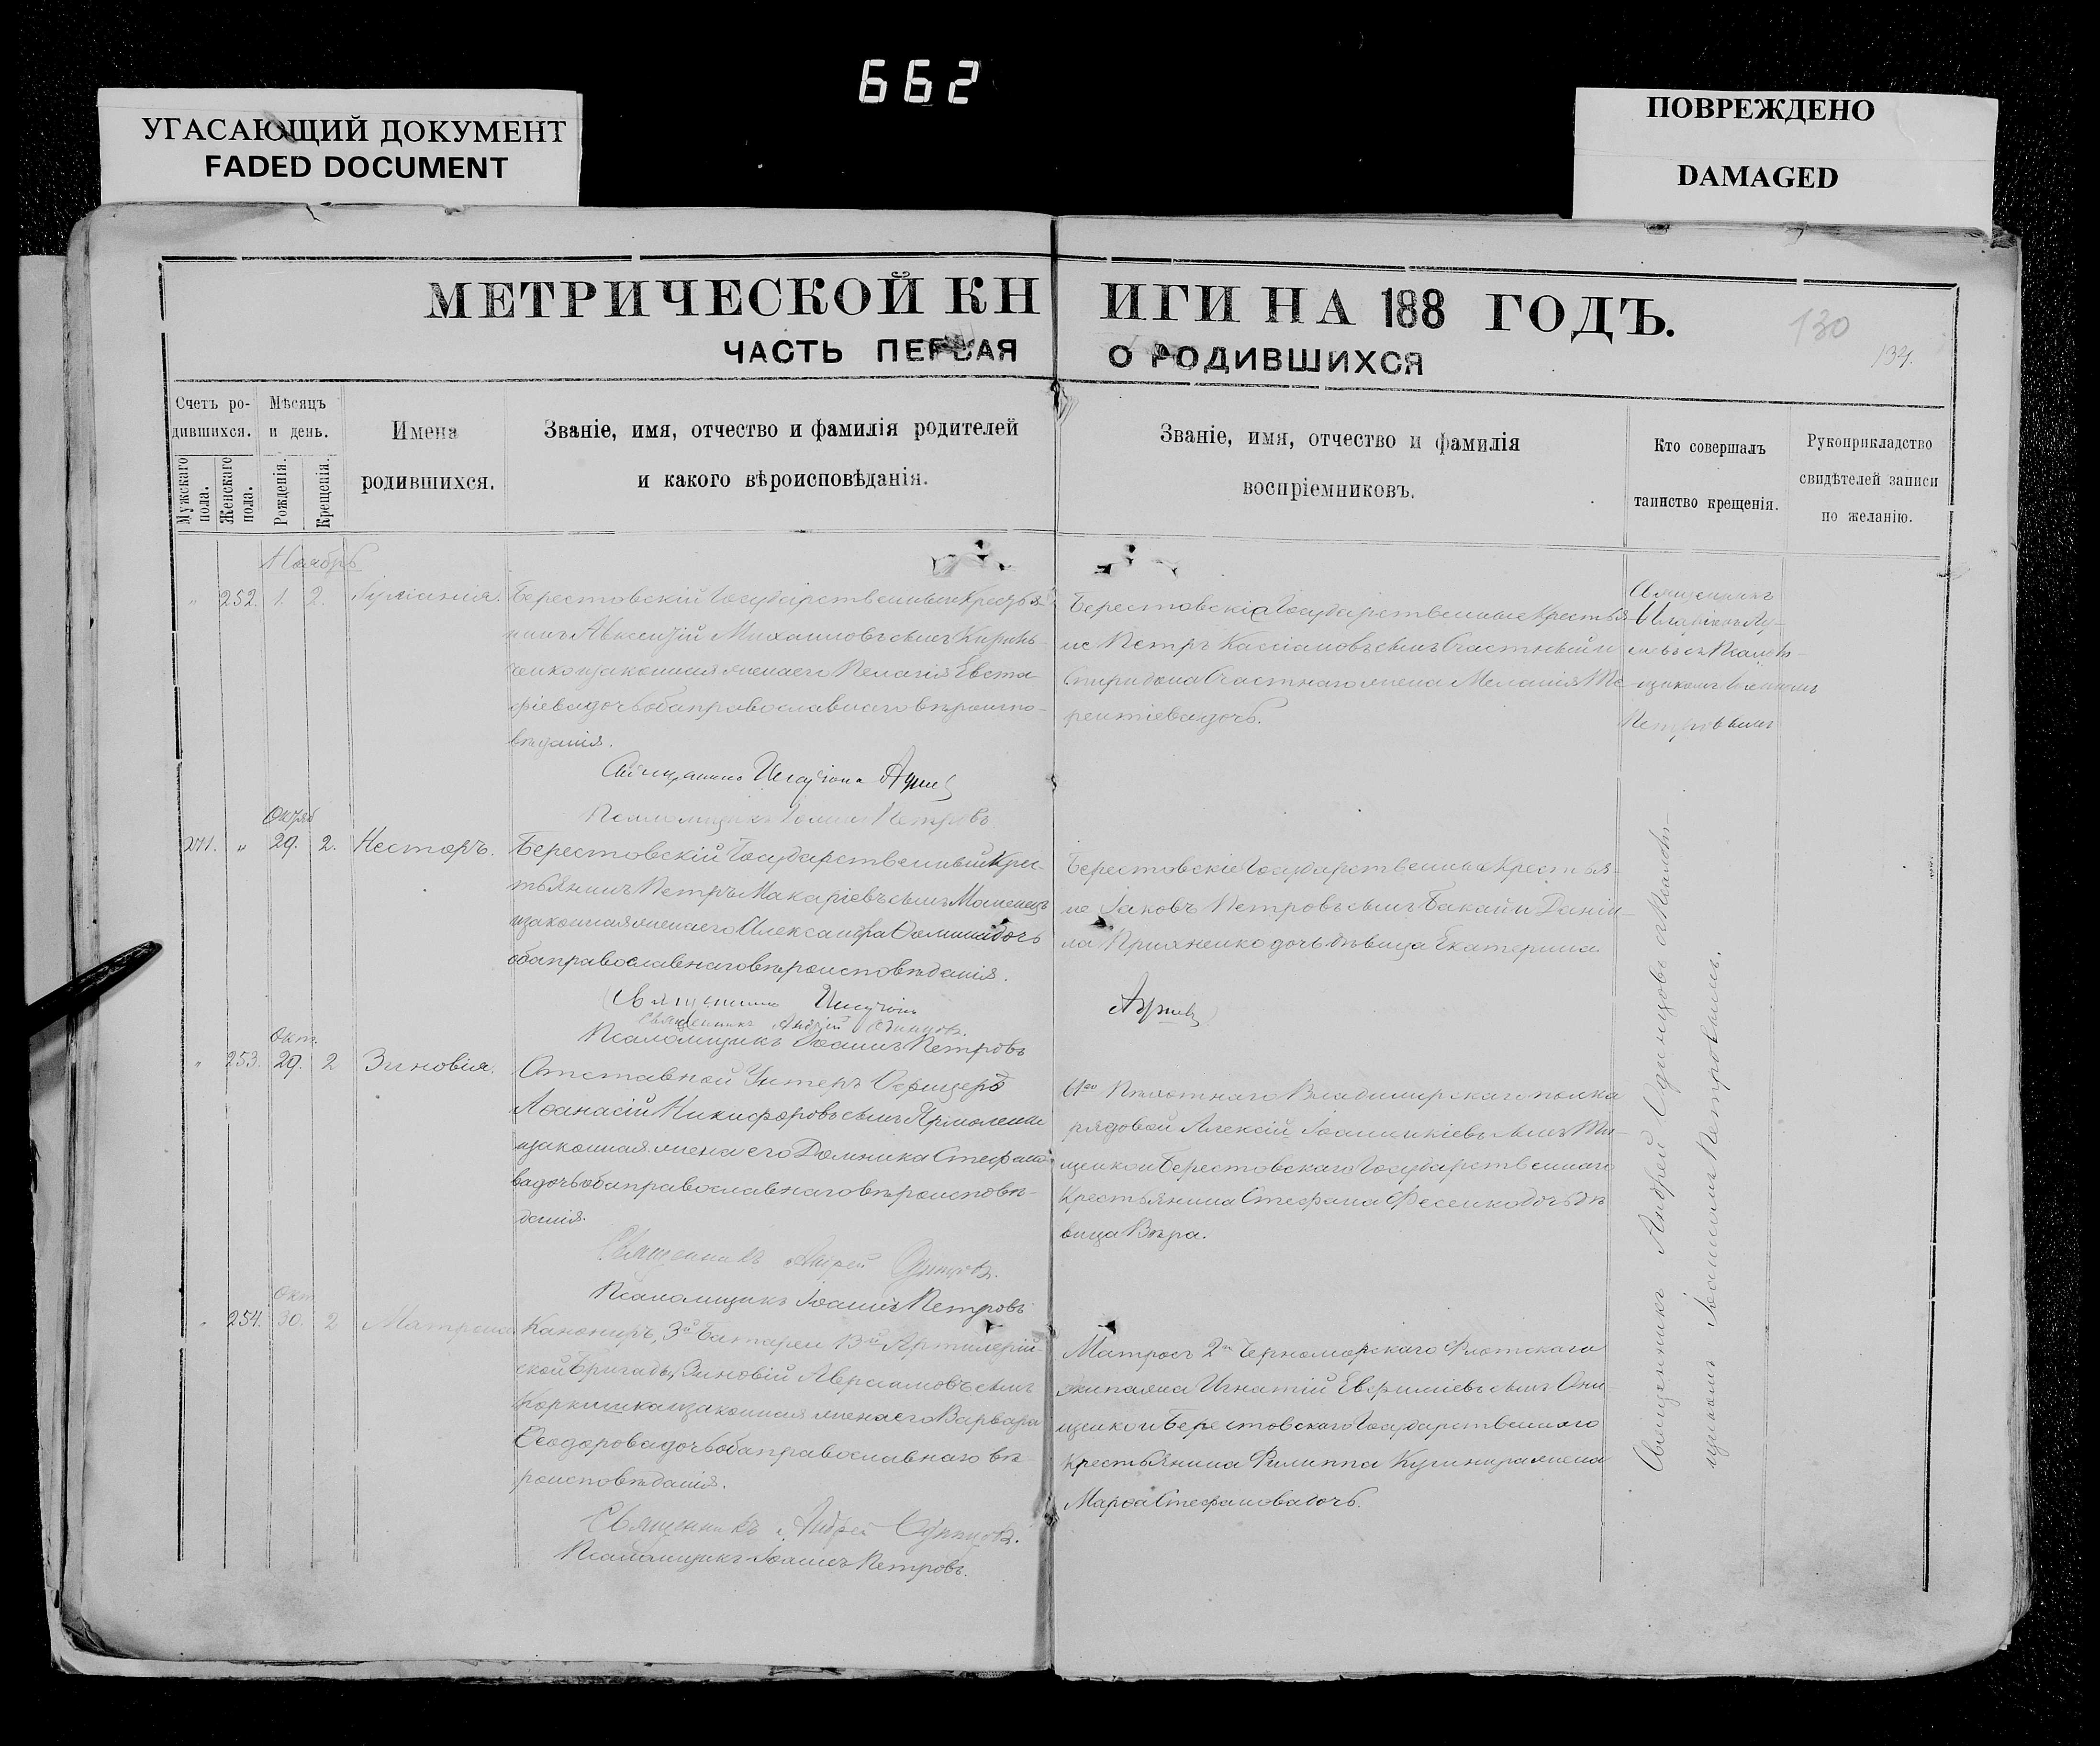 662
УГАСАЮЩИЙ ДОКУМЕНТ
FADED DOCUMENT
ПОВРЕЖДЕНО
DAMAGED
МЕТРИЧЕСКОЙ КНИГИ НА 188 ГОДЪ.
130
134.
ЧАСТЬ ПЕРВАЯ О РОДИВШИХСЯ
Счетъ ро-
дившихся.
Мужскаго пола.
Женскаго пола.
Мѣсяцъ
и день.
Рожденія.
Крещенія.
Имена
родившихся.
Званіе, имя, отчество и фамилія родителей
и какого вѣроисповѣданія.
Званіе, имя, отчество и фамилія
воспріемниковъ.
Кто совершалъ
таинство крещенія.
Рукоприкладство
свидѣтелей записи
по желанію.
Ноябрь
" 252. 1. 2.
Берестовскій Государственный Крестья-
нинъ Авксентій Михаиловъ сынъ
и законная жена его Пелагія Евста
фіева дочь оба православнаго вѣроиспо-
вѣданія.
Псаломщикъ Іоаннъ Петровъ
Берестовскіе Государственные Крестья-
не Петръ Кассіановъ сынъ Счастный и
Спиридона Счастнаго жена Меланія Те-
рентіева дочь.
Священникъ
Петровымъ
Октяб
271. " 29. 2. Несторъ.
Берестовскій Государственный Крес-
тьянинъ Петръ Макаріевъ сынъ
и законная жена его Александра Ѳомина дочь
оба православнаго вѣроисповѣданія.
Священникъ
Священникъ Андрей Одинцовъ.
Псаломщикъ Іоаннъ Петровъ
Берестовскіе Государственные Крестья-
не Іаковъ Петровъ сынъ Бакай и Даніи-
ла дочь дѣвица Екатерина.
Окт.
" 253. 29. 2 Зиновія.
Отставной Унтеръ Офицеръ
Аѳанасій Никифоровъ сынъ Ярмоленко
и законная жена его Домника Стефано
ва дочь оба православнаго вѣроисповѣ-
данія.
Священникъ Андрей Одинцовъ.
Псаломщикъ Іоаннъ Петровъ
Пѣхотнаго Владимирскаго полка
рядовой Алексій сынъ
щенко и Берестовскаго Государственнаго
Крестьянина Стефана Фесенко дочь дѣ
вица Вѣра.
Окт
" 254. 30. 2 Матрона
Канониръ, 3й Батареи 13й Артилерій-
ской Бригады, Зиновій Авраамовъ сынъ
и законная жена его Варвара
Ѳеодорова дочь оба православнаго вѣ
роисповѣданія.
Священникъ Андрей Одинцовъ.
Псаломщикъ Іоаннъ Петровъ.
Матросъ 2го Черноморскаго Флотскаго
экипажа Игнатій Евфиміевъ сынъ Они
щенко и Берестовскаго Государственнаго
Крестьянина Филиппа жена
Марѳа Стефанова дочь.
Священникъ Андрей Одинцовъ съ Псалом-
щикомъ Іоанномъ Петровымъ.